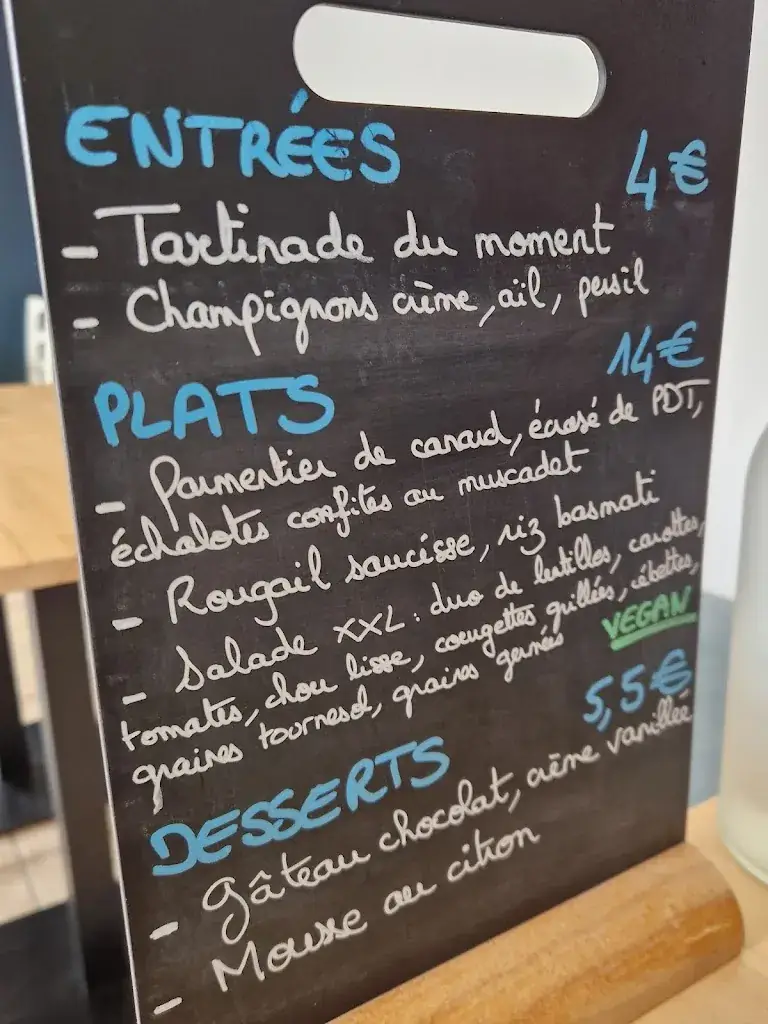 ENTRÉES 4€
- Tartinade du moment
- Champignons crème, ail, persil
PLATS 14€
- Parmentier de canard, écrasé de PDT,
échalotes confites au muscadet
- Rougail saucisse, riz basmati
- Salade XXL : duo de lentilles, carottes,
tomates, chou lisse, courgettes grillées, cébettes,
graines tournesol, graines germées VEGAN
DESSERTS 5,5€
- Gâteau chocolat, crème vanillée
- Mousse au citron